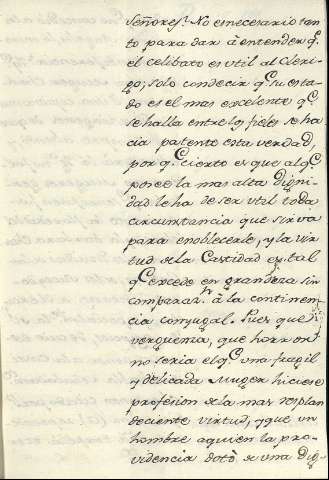 Señores? No es necesario tan
to para dar à entender q.e
el celibato es util al Cleri-
go; solo con decir q.e su esta-
do es el mas excelente q.e
se halla entre los fieles se ha-
cia patente esta verdad,
por q.e cierto es que al q.e
posee la mas alta digni-
dad le ha de ser util toda
circunstancia que sirva
para ennoblecerle, y la vir
tud de la Castidad es tal
q.e excede en grandeza sin
comparaz.n à la continen-
cia conyugal. Pues que
vergüenza, que horror
no seria el q.e una fragil
y delicada Muger hiciese
profesion de la mas resplan
deciente virtud, y que un
hombre a quien la pro-
videncia dotò de una dig-